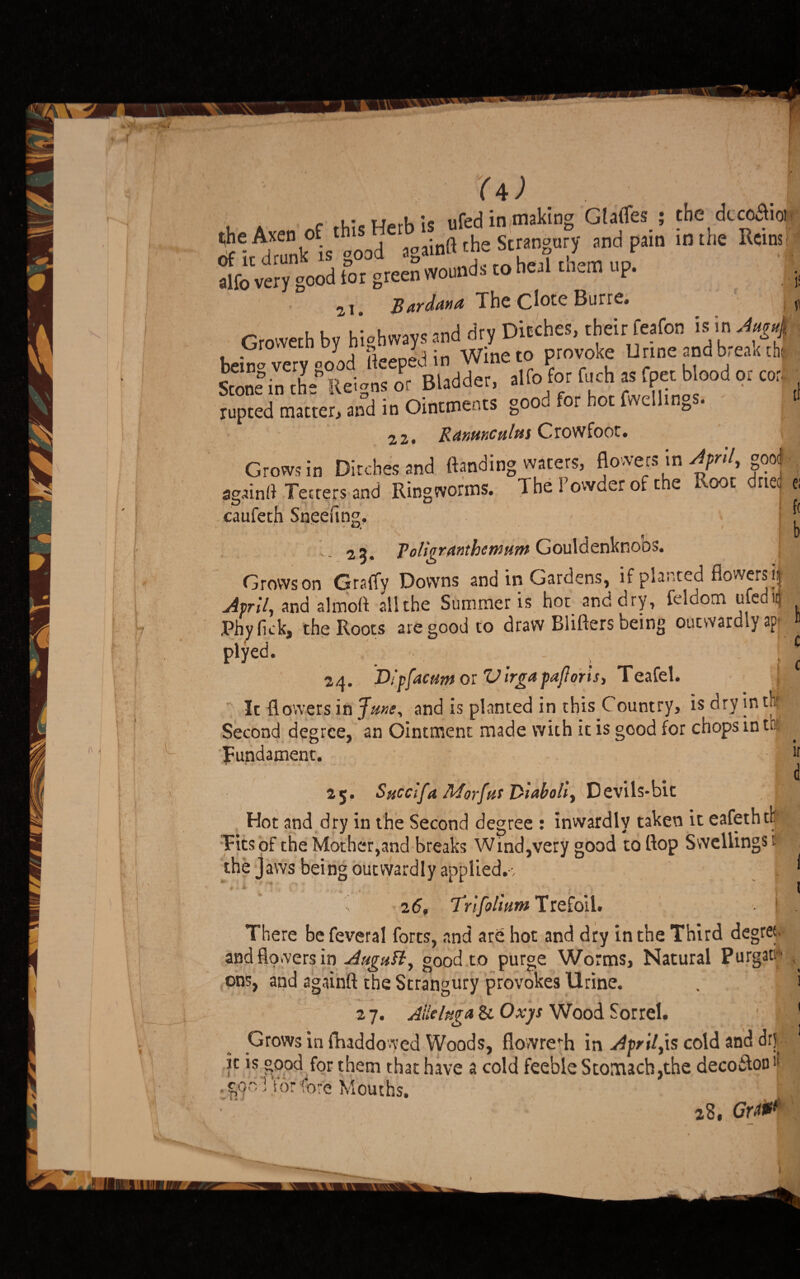 (4)
the Axen of this Herb is uſed in making Glaſſes ; the decoctio
of it drunk is good againſt the Strangury and pain in the Reins
alſo very good for green wounds to heal them up.
21. Bardana The Clote Burre.
Groweth by highways and dry Ditches, their ſeaſon is in Auguſ
being very good ſteeped in Wine to provoke Urine and break the
Stone in the Reigns or Bladder, alſo for ſuch as ſpet blood or cor
rupted matter, and in Ointments good for hot ſwellings.
22. Ranunculus Crowfoot.
Grows in Ditches and ſtanding waters, flowers in April, good
againſt Tetters and Ringworms. The Powder of the Root dried
cauſeth Sneeſing.
23. Poligranthemum Gouldenknobs.
Grows on Graſſy Downs and in Gardens, if planted flowers in
April, and almoſt all the Summer is hot and dry, ſeldom uſed in
Phyſick, the Roots are good to draw Bliſters being outwardly ap
plyed.
24. Dipſacum or Virga paſtoris, Teaſel.
It flowers in June, and is planted in this Country, is dry in th
Second degree, an Ointment made with it is good for chops in th
Fundament.
25. Succiſa Morſus Diaboli, Devils-bit
Hot and dry in the Second degree : inwardly taken it eaſeth th
Fits of the Mother,and breaks Wind,very good to ſtop Swellings
the Jaws being outwardly applied.
26, Trifolium Trefoil.
There be ſeveral ſorts, and are hot and dry in the Third degre
and flowers in Auguſt, good to purge Worms, Natural Purgati
ons, and againſt the Strangury provokes Urine.
27. Alleluga & Oxys Wood Sorrel.
Grows in ſhaddowed Woods, flowreth in April,is cold and dry
it is good for them that have a cold feeble Stomach,the decocton
good for ſore Mouths.
28, Gra